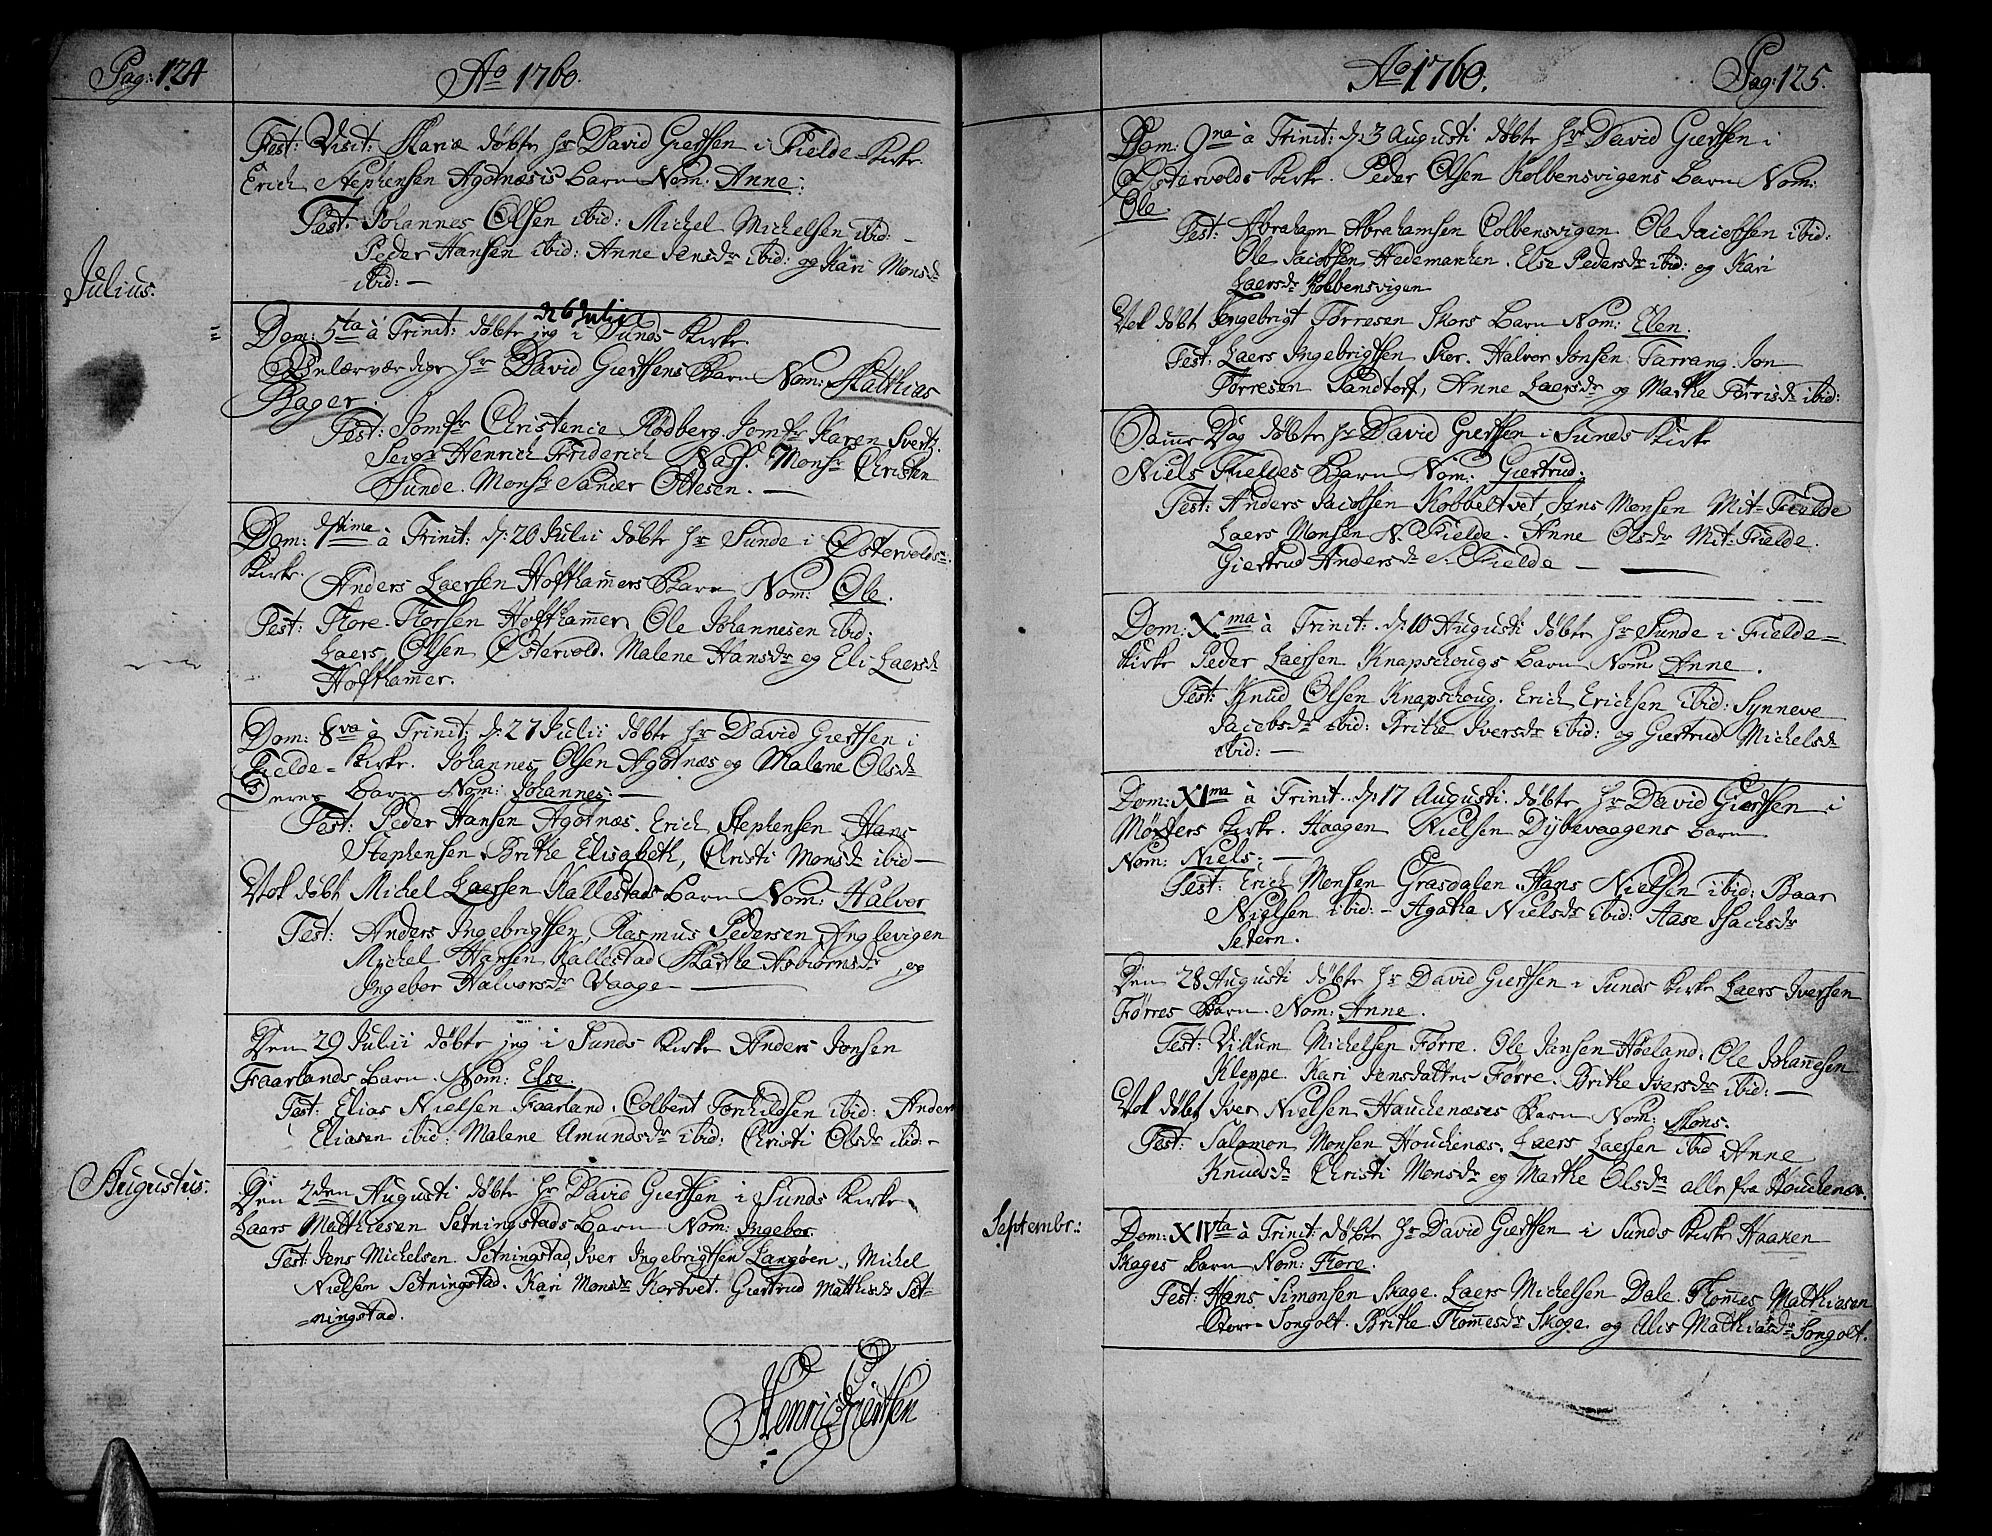 Pag: 124
Ao 1760.
Julius.
Fest: Visit: Mariæ døbte Hr David Giertsen i Fielde-Kirke
Erich Stephensen Agotnæsis Barn Nom: Anne:
Test: Johannes Olsen ibid: Michel Michelsen ibid: –
Peder Hansen ibid: Anne Jensdr ibid: og Kari Monsdr
ibid: –
d 6 Julii
Dom: 5ta à Trinit: døbte jeg i Sunds Kirke
Velærværdige Hr David Giertsens Barn Nom: Matthias
Bager.
Test: Jomfr Christence Rødberg. Jomfr Karen Svertz.
Seigr Henrich Friderich. Monsr Christen
Sunde. Monsr Sander Ottesen. –
Dom: 7time à Trinit: d: 20 Julii døbte Hr Sunde i Østervolds
Kirke. Anders Laersen Hofthamers Barn Nom: Ole.
Test: Tore Torsen Hofthamer, Ole Johannesen ibid:
Laers Olsen Østervold. Malene Hansdr og Eli Laersdr
Hofthamer.
Dom: 8va à Trinit: d: 27 Julii døbte Hr David Giertsen i
Fielde-Kirke. Johannes Olsen Agotnæs og Malene Olsdr
Deres Barn Nom: Johannes: –
Test: Peder Hansen Agotnæs. Erich Stephensen Hans
Stephensen. Brithe Elisabeth, Christi Monsdr ibid –
Nok døbt Michel Laersen Kallestads Barn Nom: Halvor
Test: Anders Ingebrigtsen Rasmus Pedersen Anglevigen
Michel Hansen Kallestad Marthe Asbiornsdr og
Ingebor Halvorsdr Vaage –
Den 29 Julii døbte jeg i Sunds Kirke Anders Jonsen
Faarlands Barn. Nom: Else.
Test: Elias Nielsen Faarland. Colbent Tonhildsen ibid: Anders
Eliasen ibid: Malene Amundsdr ibid: Christi Olsdr ibid: –
Augustus.
Den 2den Augusti døbte Hr David Giertsen i Sunds Kirke
Laers Matthiesen Setningstads Barn Nom: Ingebor.
Test: Jens Michelsen Setningstad, Iver Ingebrigtsen Langøen, Michel
Nielsen Setningstad. Kari Monsdr Kortvet. Giertrud Matthisdr Set-
ningstad.
Henric Giertsen
Ao 1760.
Pag: 125.
Dom: 9na à Trinit: d: 3 Augusti døbte Hr David Giertsen i
Østervolds Kirke. Peder Olsen Kolbensvigens Barn Nom:
Ole.
Test: Abraham Abrahamsen Colbensvigen. Ole Jacobsen ibid:
Ole Jacobsen Hedemarken. Else Pedersdr ibid: og Kari
Laersdr Kolbensvigen
Nok døbt Ingebrigt Tørresen Skors Barn Nom: Elen.
Test: Laers Ingebrigtsen Skor. Halvor Jonsen Tarrang. Jon
Tørresen Sandtorf, Anne Laersdr og Marthe Tørrisdr ibid:
Samme Dag døbte Hr David Giertsen i Sunds Kirke
Niels Fieldes Barn Nom: Giertrud.
Test: Anders Jacobsen Kobbeltvet Jens Monsen Mit-Fielde
Laers Monsen N. Fielde. Anne Olsdr Mit: Fielde.
Giertrud Andersdr N. Fielde –
Dom: Xma à Trinit: d: 10 Augusti døbte Hr Sunde i Fielde-
Kirke Peder Laersen Knapschougs Barn Nom: Anne.
Test: Knud Olsen Knapschoug. Erich Erichsen ibid: Synneve
Jacobsdr ibid: Brithe Iversdr ibid: og Giertrud Michelsdr
ibid: –
Dom: XIma à Trinit. d: 17 Augusti. døbte Hr David Giertsen i
Møgsters Kirke. Haagen Nielsen Dybevaagens Barn
Nom: Niels: –
Test: Erich Monsen Grasdalen. Hans Nielsen ibid: Baar
Nielsen ibid: – Agatha Nielsdr ibid: Aase Isachsdr
Setern.
Den 28 Augusti døbte Hr David Giertsen i Sunds Kirke Laers Iversen
Førres Barn. Nom: Anne.
Test: Villum Michelsen Førre. Ole Jansen Høeland. Ole Johannesen
Kleppe. Kari Jensdatter Førre. Brithe Iversdr ibid: –
Nok døbt Iver Nielsen Hauchenæses Barn Nom: Mons.
Test: Salomon Monsen Houchenæs. Laers Laersen ibid Anne
Knudsdr Christi Monsdr og Marthe Olsdr alle fra Houchenæs.
Septembr:
Dom: XIVta à Trinit: døbte Hr David Giertsen i Sunds Kirke Haaken
Skages Barn Nom: Tore.
Test: Hans Simonsen Skage. Laers Michelsen Dale. Thommes Matthiasen
Store-Songolt. Brithe Thommesdr Skoge. og Alis Mathiasdr Songolt.